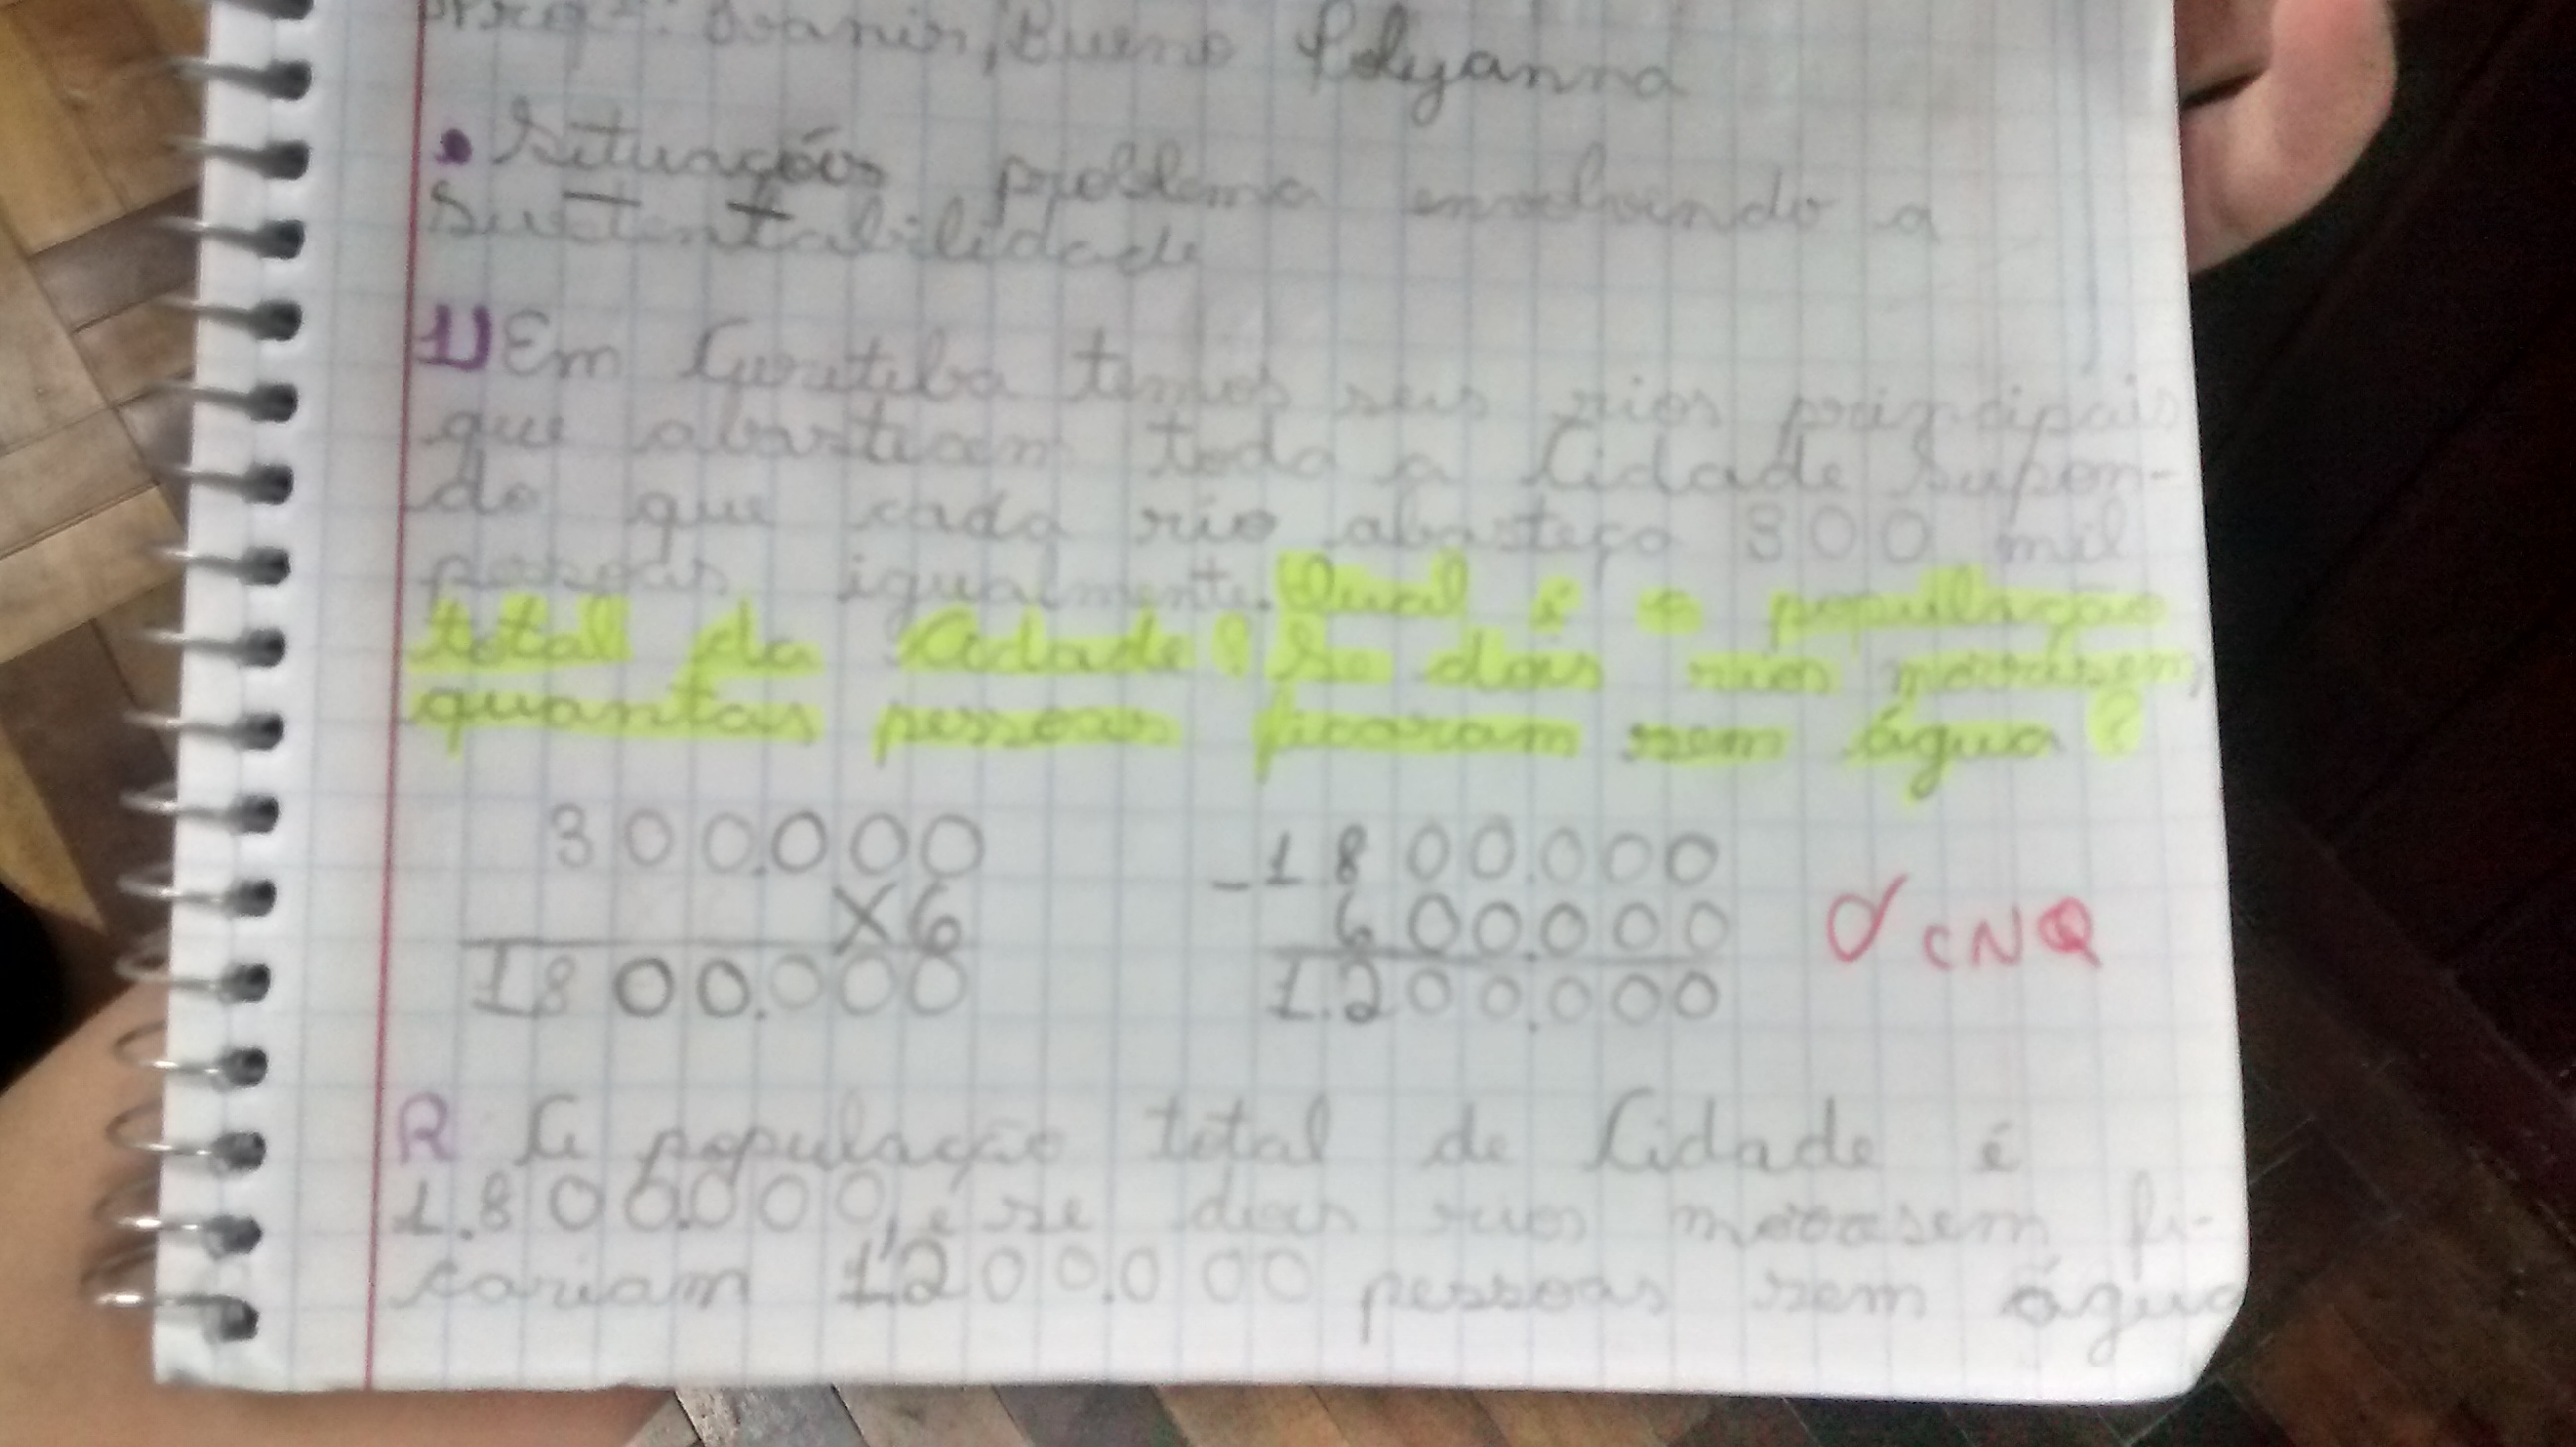 Bueno Polyanna
• Situações problema envolvendo a
Sustentabilidade
1) Em Curitiba temos seis rios principais
que abastecem toda a Cidade Supon-
do que cada rio abasteça 300 mil
pessoas igualmente. Qual é a população
total da Cidade? Se dois rios morresem,
quantas pessoas ficaram sem água?
300.000
X6
1800.000
-1.800.000
600.000
1.200.000
CNQ
R A população total de Cidade é
1.800.000, e se dois rios morresem fi-
cariam 1.200.000 pessoas sem água